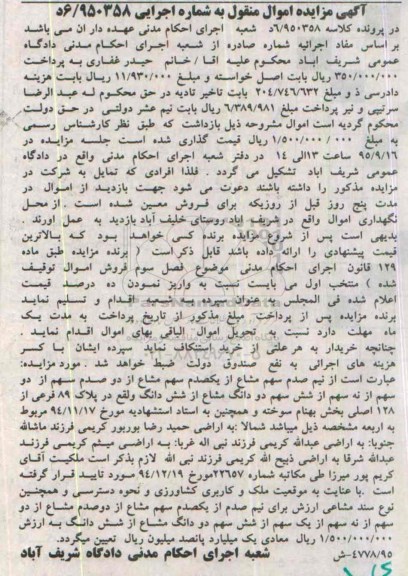 آگهی مزایده اموال منقول به شماره اجرایی ۶/۹۵۰۳۵۸د
در پرونده کلاسه ۶/۹۵۰۳۵۸د شعبه اجرای احکام مدنی عهده دار ان می باشد
بر اساس مفاد اجرائیه شماره صادره از شعبه اجرای احکام مدنی دادگاه
عمومی شریف اباد محکوم علیه اقا / خانم حیدر غفاری به پرداخت
۳۵۰/۰۰۰/۰۰۰ ریال بابت اصل خواسته و مبلغ ۱۱/۹۳۰/۰۰۰ ریال بابت هزینه
دادرسی ذ و مبلغ ۲۰۴/۷۴۶/۶۳۲ بابت تاخیر تادیه در حق محکوم له عبد الرضا
سرتیپی و نیر پرداخت مبلغ ۶/۳۸۹/۹۸۱ ریال بابت نیم عشر دولتی در حق دولت
محکوم گردیه است اموال مشروحه ذیل بازداشت که طبق نظر کارشناس رسمی
به مبلغ ۱/۵۰۰/۰۰۰/۰۰۰ ریال قیمت گذاری شده است جلسه مزایده در
۹۵/۹/۱۶ ساعت ۱۳الی ۱۴ در دفتر شعبه اجرای احکام مدنی واقع در دادگاه
عمومی شریف اباد تشکیل می گردد . فلذا افرادی که تمایل به شرکت در
مزایده مذکور را داشته باشند دعوت می شود جهت بازدید از اموال در
مدت پنج روز قبل از روزیکه برای فروش معین شده است . از محل
نگهداری اموال واقع در شریف اباد روستای خلیف آباد بازدید به عمل اورند .
بدیهی است پس از شروع مزایده برنده کسی خواهد بود که بالاترین
قیمت پیشنهادی را ارائه داده باشد قابل ذکر است برنده مزایده طبق ماده
۱۲۹ قانون اجرای احکام مدنی موضوع فصل سوم فروش اموال توقیف
شده ) منتخب اول می بایست نسبت به واریز نمودن ده درصد قیمت
اعلام شده فی المجلس به عنوان سپرده به شعبه اقدام و تسلیم نماید
برنده مزایده پس از پرداخت مبلغ مذکور از تاریخ پرداخت به مدت یک
ماه مهلت دارد نسبت به تحویل اموال الباقی بهای اموال اقدام نماید .
چنانچه خریدار به هر علتی از خرید استنکاف نماید سپرده ایشان با کسر
هزینه های اجرائی به نفع صندوق دولت ضبط خواهد شد . مورد مزایده:
عبارت است از نیم صدم سهم مشاع از یکصدم سهم مشاع از دو صدم سهم از دو
سهم از نه سهم از شش سهم دو دانگ مشاع از شش دانگ ولقع در پلاک ۸۹ فرعی از
۱۲۸ اصلی بخش بهنام سوخته و همچنین به استاد استشهادیه مورخ ۹۴/۱۱/۱۷ مربوط
به اربعه مشخصه ذیل میباشد شمالا :به اراضی حمید رضا بوربور کریمی فرزند ماشالله
جنوبا: به اراضی عبدالله کریمی فرزند نبی اله غربا: به اراضی میثم کریمی فرزند
عبدالله شرقا به اراضی ذبیح الله کریمی فرزند نبی الله لازم بذکر است ملکیت آقای
کریم پور میرزا طی مکاتبه شماره ۲۲۶۵۷مورخ ۹۴/۱۲/۱۹ مورد تایید قرار گرفته
است .با عنایت به موقعیت ملک و کاربری کشاورزی و نحوه دسترسی و همچنین
نوع سند مشاعی ارزش برای نیم صدم از یکصدم سهم مشاع از دوصدم مشاع از دو
سهم از نه سهم از یک سهم از شش سهم دو دانگ مشاع از شش دانگ به ارزش
۱/۵۰۰/۰۰۰/۰۰۰ ریال معادی یک میلیارد پانصد میلیون ریال تعیین میگردد.
۴۷۷۸/۹۵-ش شعبه اجرای احکام مدنی دادگاه شریف آباد